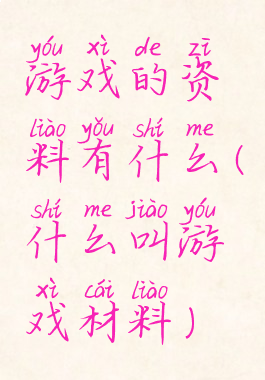 yóu xì de zī
游戏的资
liào yǒu shí me
料有什么(
shí me jiào yóu
什么叫游
xì cái liào
戏材料)